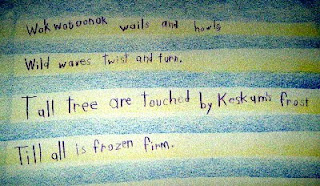 Wokwotoonok wails and howls
Wild waves Twist and turn.
Tall tree are Touched by Keskumb frost
Till all is frozen firm.